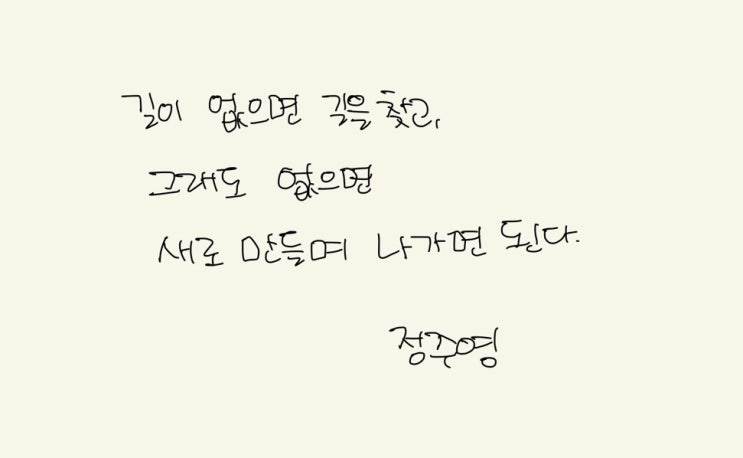 길이 없으면 길을 찾고,
그래도 없으면
새로 만들며 나가면 된다.
정주영